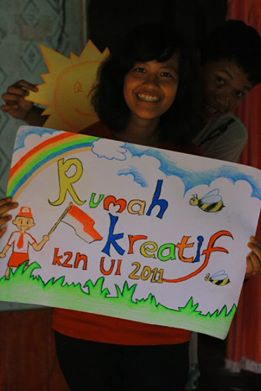 Rumah
kreatif
k2n UI 2011